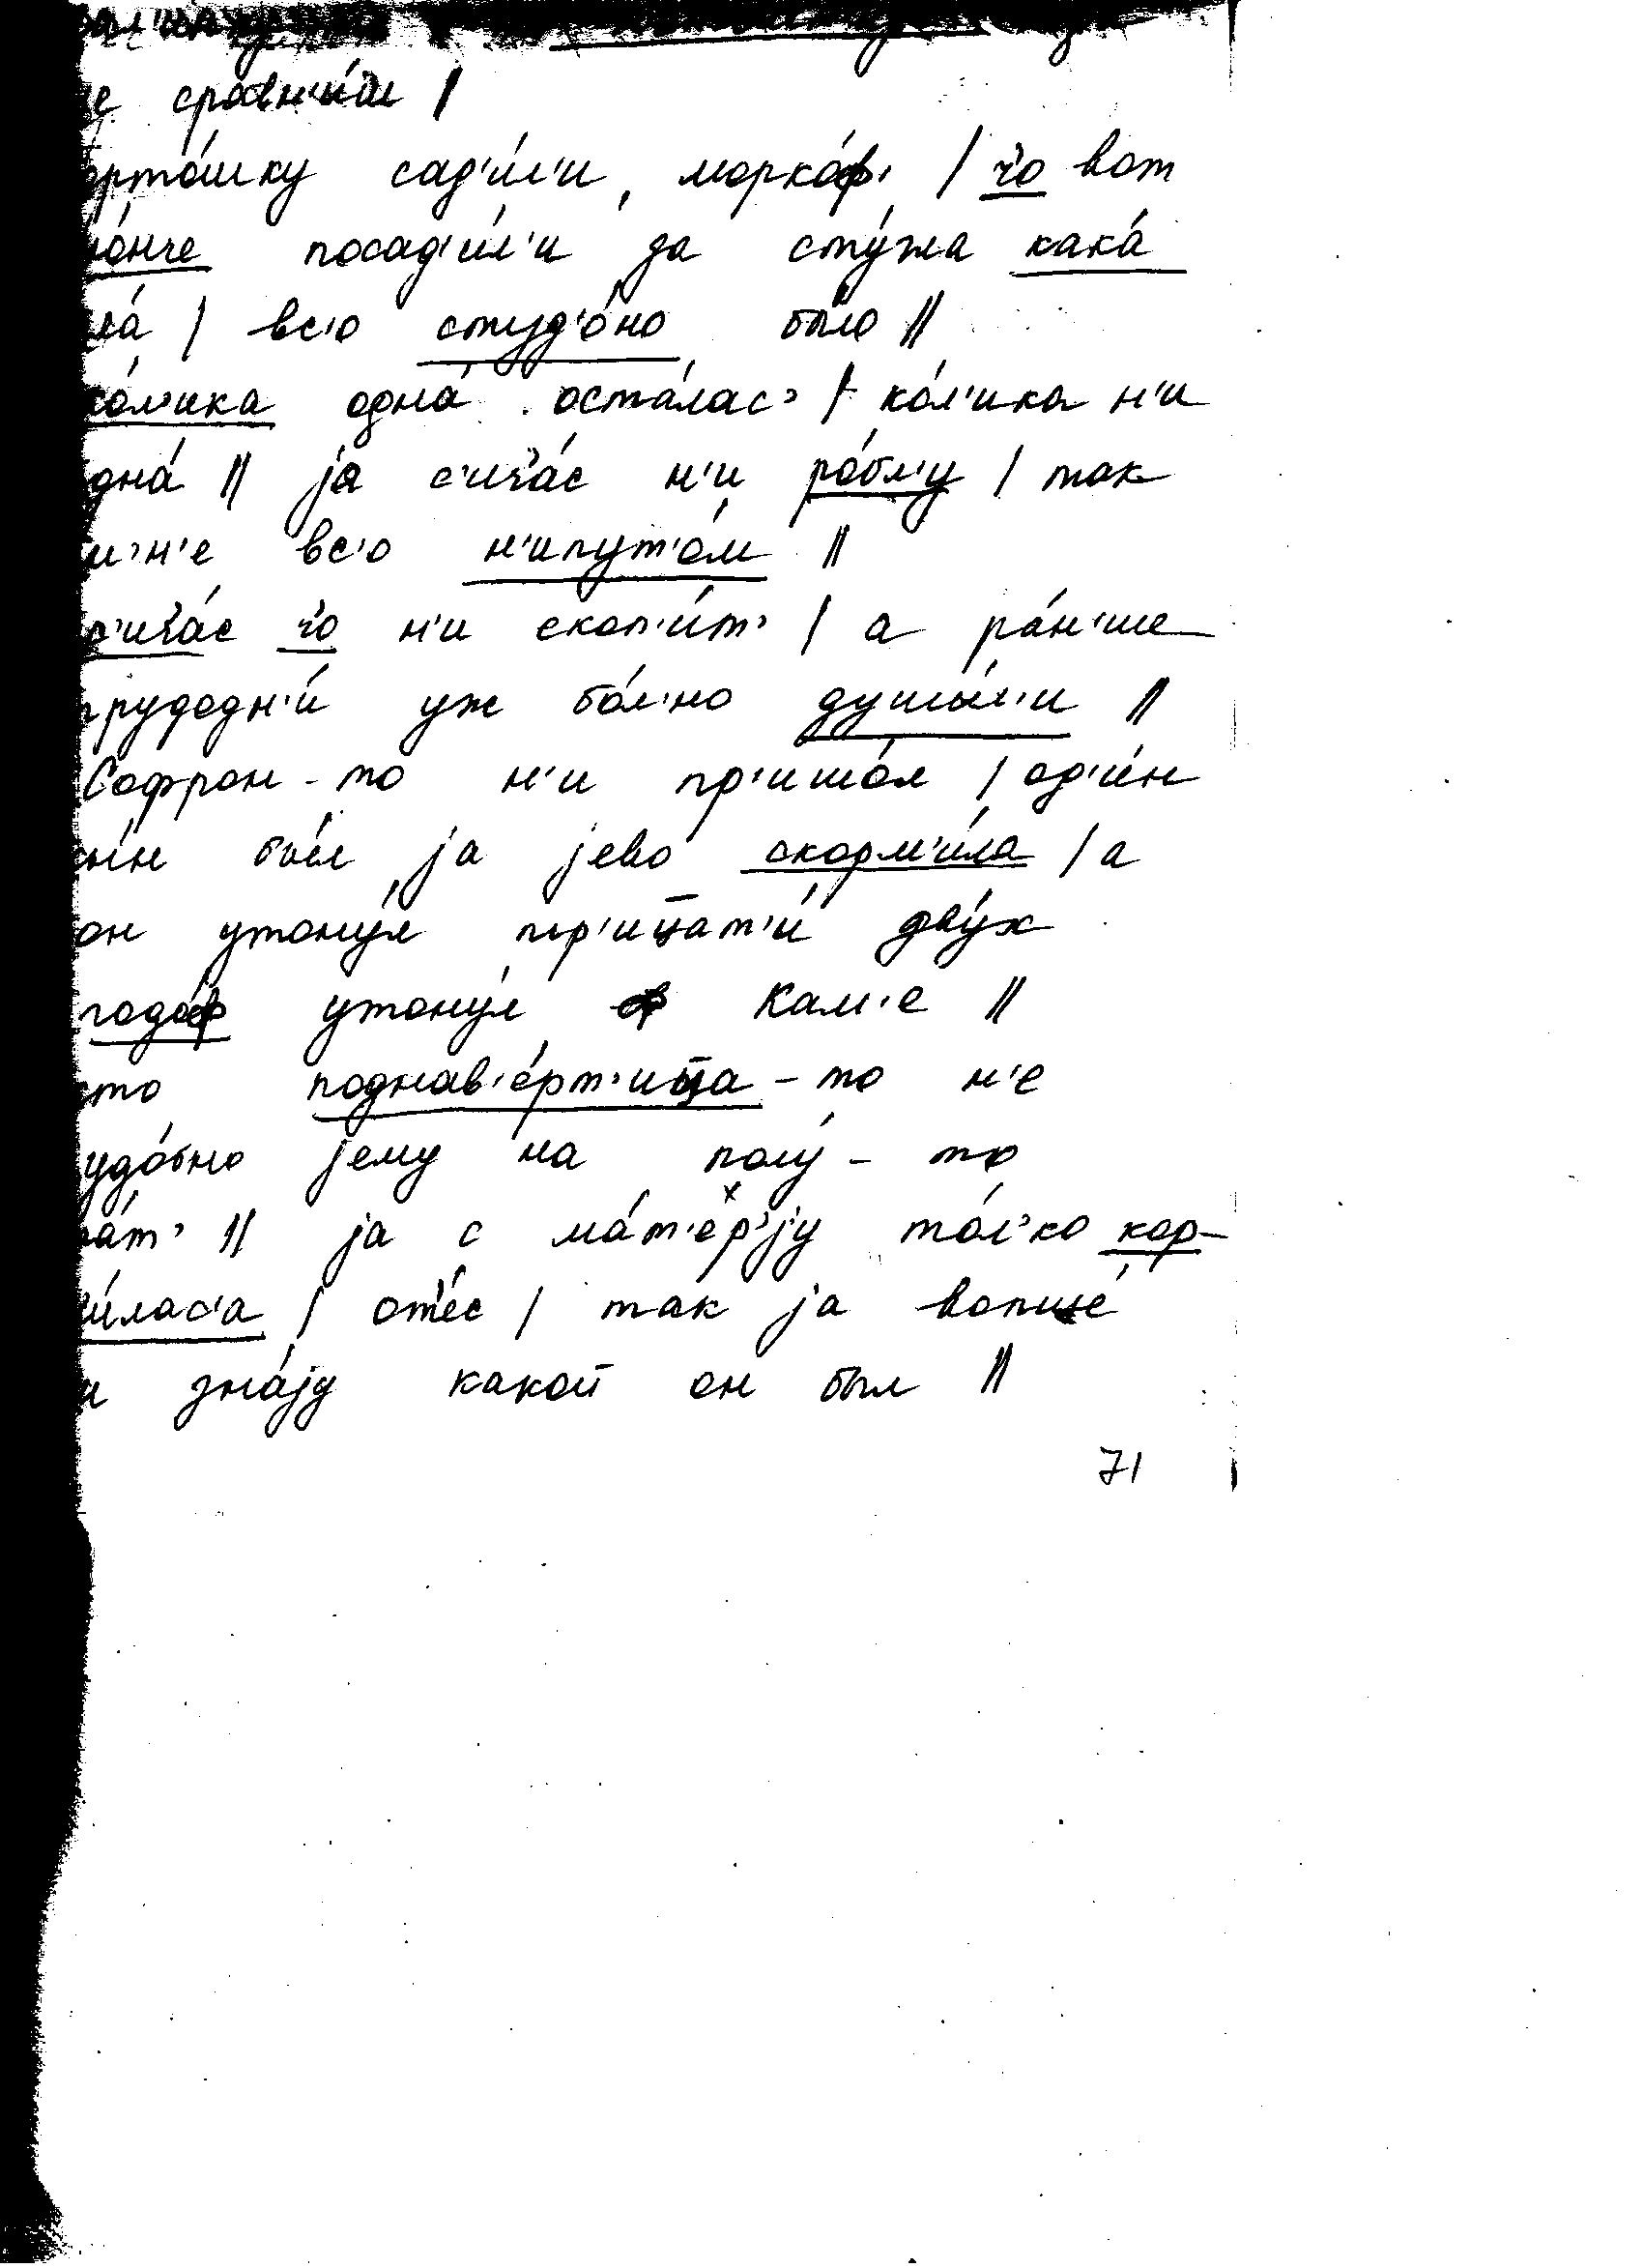 е сровн'и́ш |
рто́шку сад'и́л'и, морко́ф' | чо вот
о́нче посад'и́л'и да сту́жа кака́
ла́ | вс'о студ'о́но было ||
ко́л'ика одна́ оста́лас' | ко́л'ика н'и
дна́ || ја с'ича́с н'и ро́бл'у | так
м'н'е вс'о н'ипут'о́м ||
с'ича́с чо н'и скоп'и́т' | а ра́н'ше
трудодн'и́ уж бо́л'но душы́л'и ||
Софрон-то н'и пр'ишо́л | од'и́н
сы́н бы́л ја јево́ скорм'и́ла | а
он утону́л тр'ицат'и́ дву́х
годо́ф утону́л ф Кам'е ||
сто поднав'е́рт'ица-то н'е
удо́бно јему на полу́-то
а́т' || ја с ма́т'ер'јy то́л'ко кор-
и́лас'а | оте́с | так ја вопше́
и зна́ју какой он был ||
71